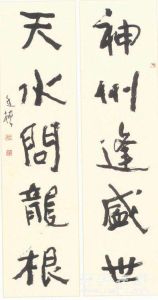 神州逢盛世
天水問龍根